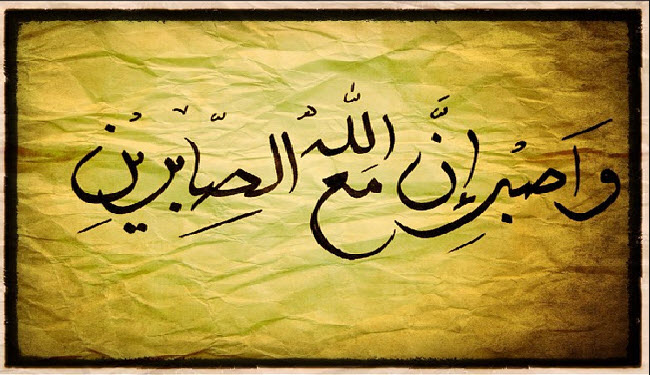 وَاصْبِر إِنَّ اللَّهَ مَعَ الصَّابِرِينَ